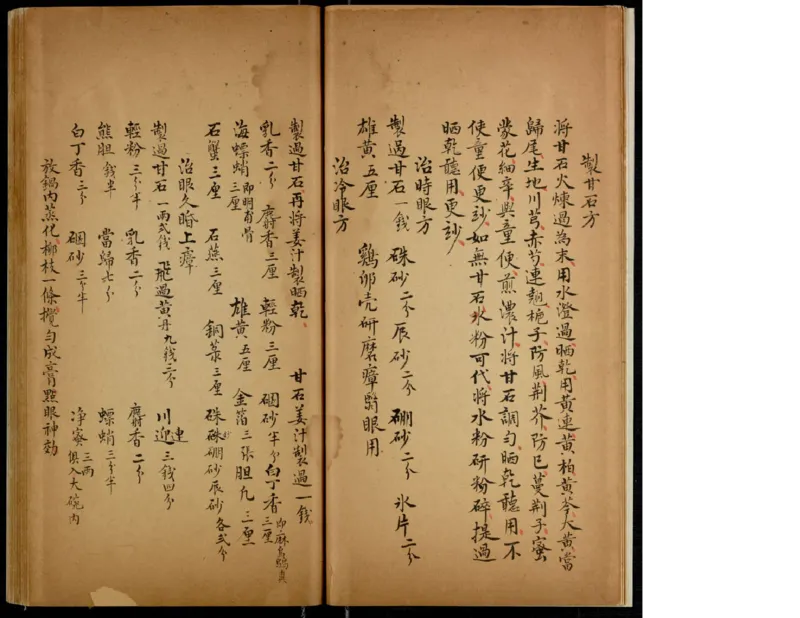 製甘石方
將甘石火煉過為末用水澄過晒乾用黃連黃柏黃芩大黃當
歸尾生地川芎赤芍連翹梔子防風荆芥防已蔓荆子蜜
蒙花細辛與童便煎濃汁將甘石調勻晒乾聽用不
使童便更玅如無甘石水粉可代將水粉研粉碎提過
晒乾聽用更玅
治時眼方
製過甘石一錢 硃砂二分 辰砂二分 硼砂二分 氷片二分
雄黃五厘 鷄卵壳研磨瘴翳眼用
治冷眼方
製過甘石再將姜汁製晒乾 甘石姜汁製過一錢
乳香二分 麝香三厘 輕粉三厘 硇砂半分 白丁香三厘
海螵蛸三厘即明甫骨 雄黃五厘 金箔三張 胆凡三厘
石蟹三厘 石燕三厘 銅菉三厘 硃砂硼砂辰砂各弍分
治眼久昏上瘴
製過甘石一兩弍錢 飛過黃丹九錢三分 川連三錢四分
輕粉三分半 乳香二分 麝香二分
熊胆錢半 當歸六分 螵蛸三分半
白丁香三分 硇砂三分半 净蜜三兩俱入大碗内
放鍋内蒸化柳枝一條攪勻成膏點眼神効